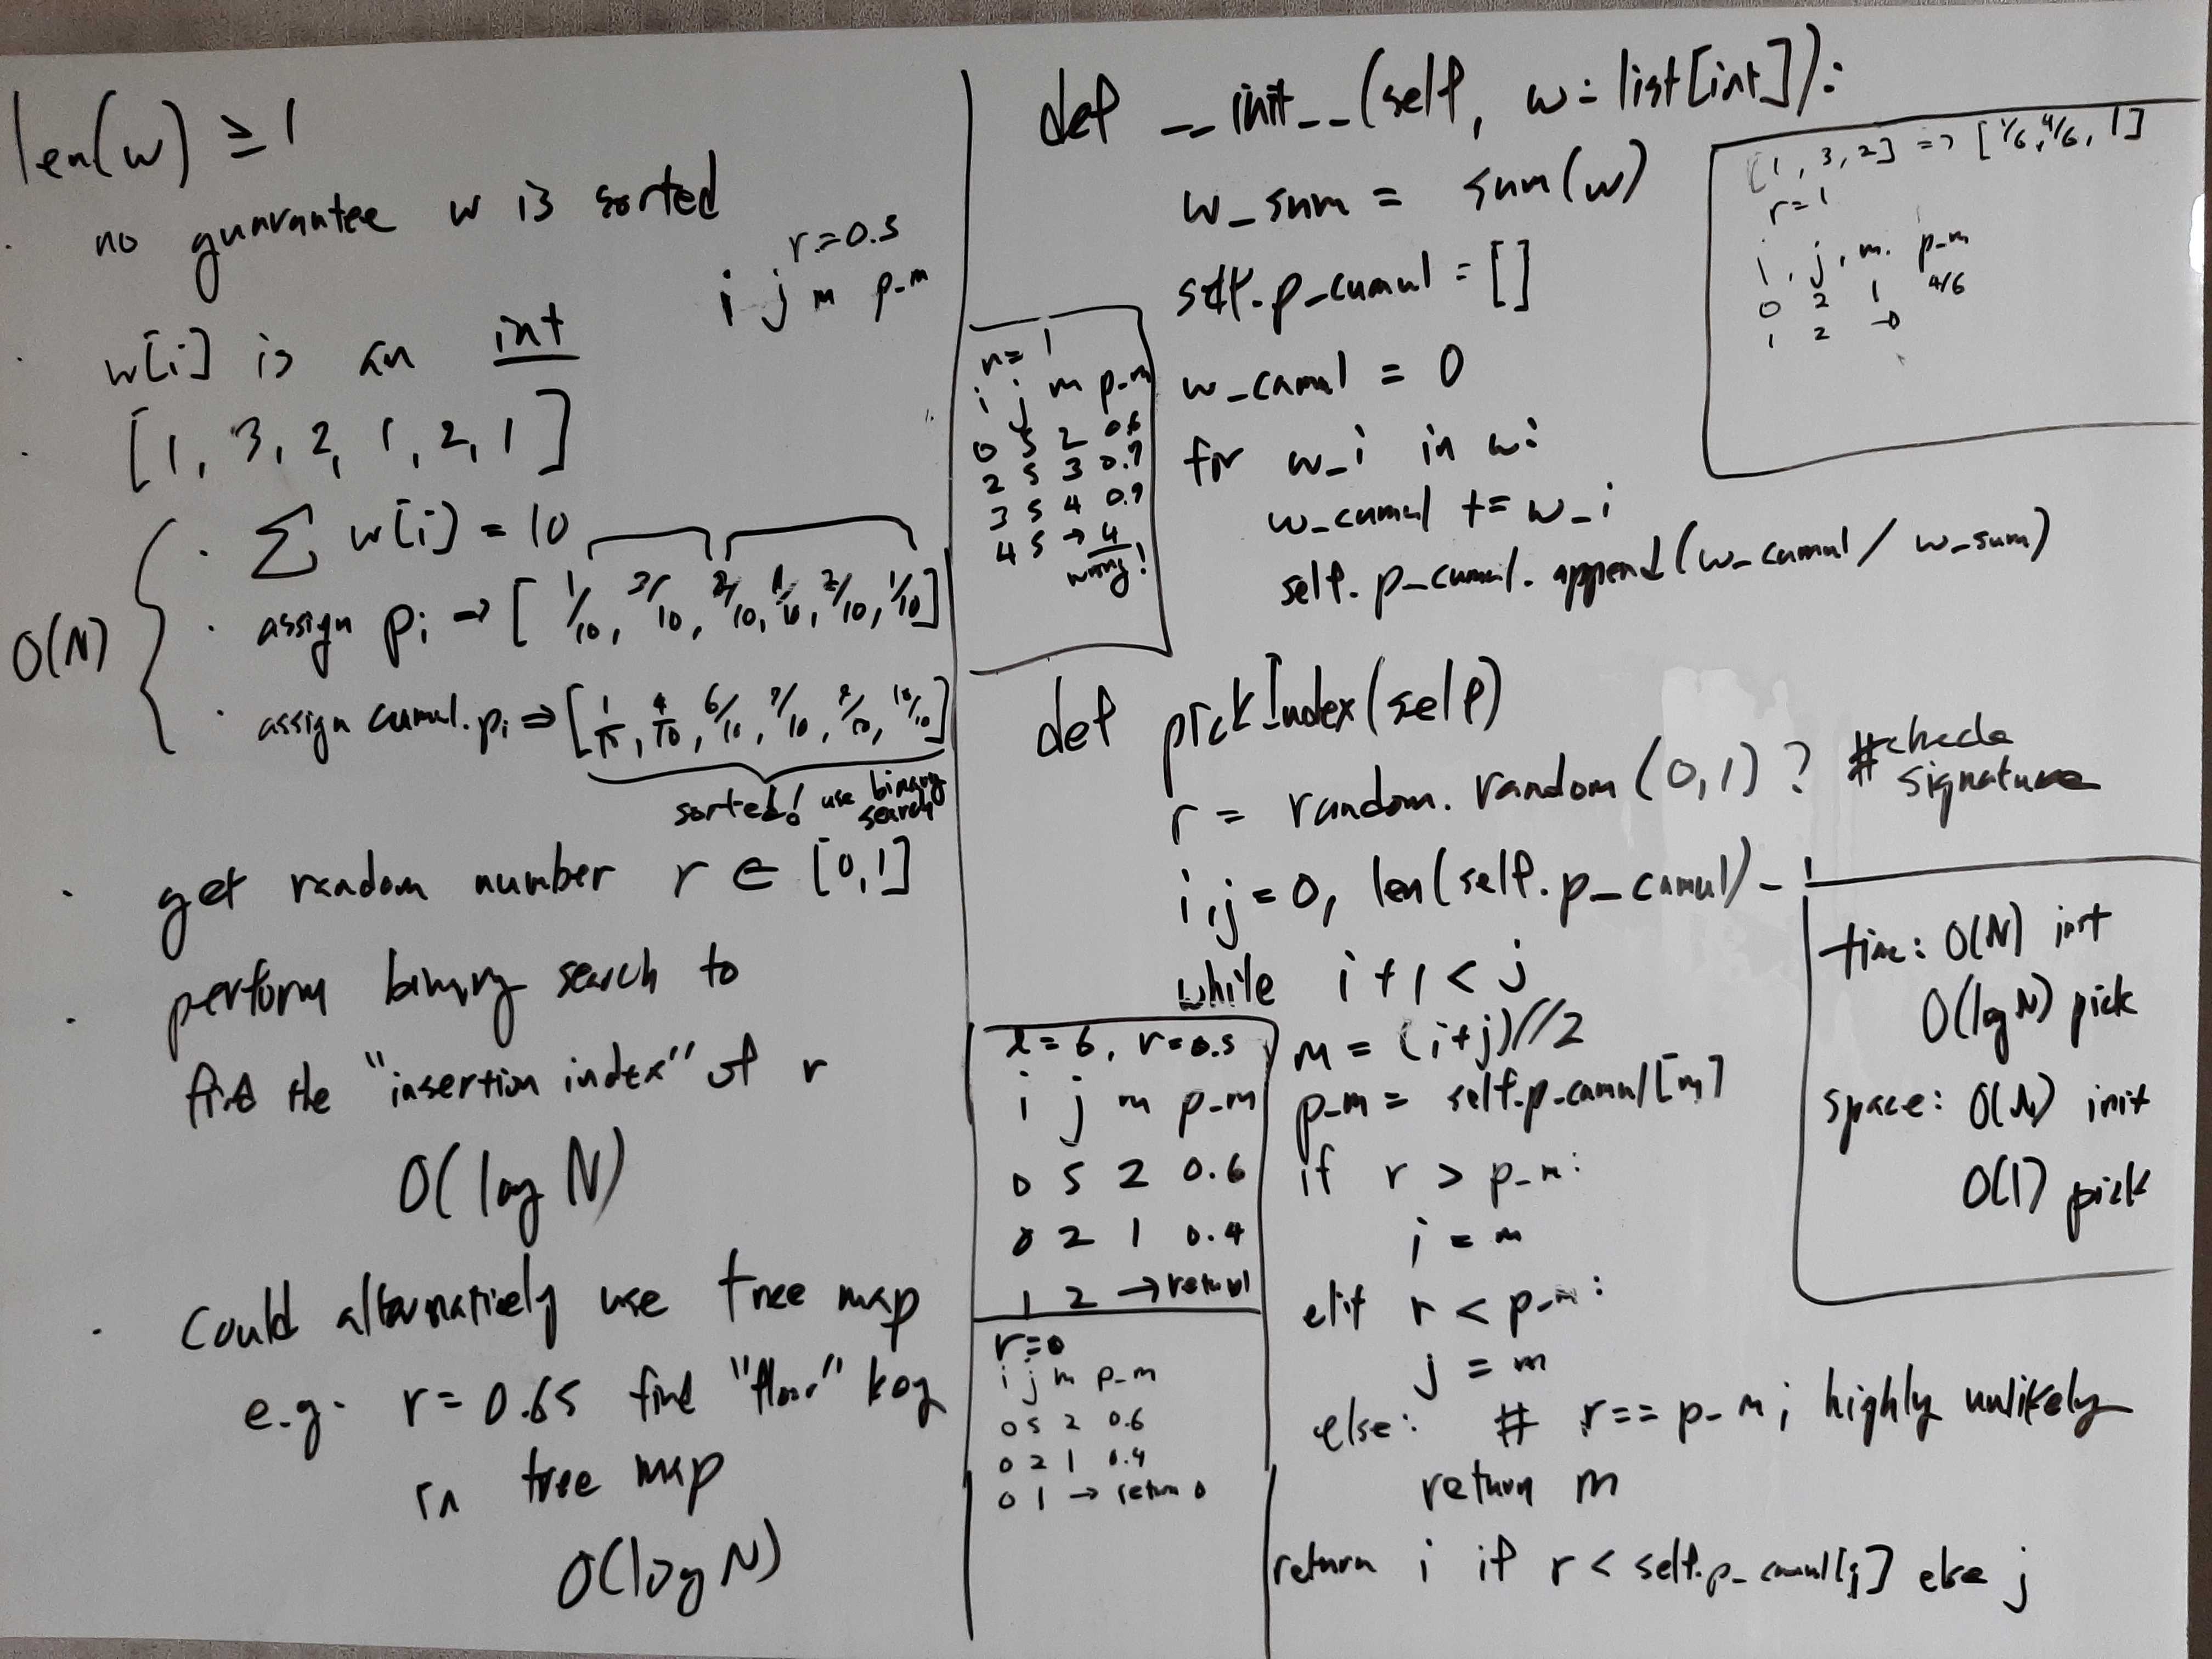 len(w) ≥ 1
· no guarantee w is sorted
r=0.5
i j m p-m
· w[i] is an int
· [1, 3, 2, 1, 2, 1]
O(N)
· ∑ w[i] = 10
· assign pi → [1/10, 3/10, 2/10, 1/10, 2/10, 1/10]
· assign cumul. pi ⇒ [1/10, 4/10, 6/10, 7/10, 9/10, 10/10]
sorted! use binary
search
· get random number r ∈ [0,1]
· perform binary search to
find the "insertion index" of r
O(log N)
· Could alternatively use tree map
e.g. r=0.65 find "floor" key
in tree map
O(log N)
r=1
i j m p-m
0 5 2 0.6
2 5 3 0.7
3 5 4 0.9
4 5 → 4
wrong!
l=6, r=0.5
i j m p-m
0 5 2 0.6
0 2 1 0.4
1 2 → return
r=0
i j m p-m
0 5 2 0.6
0 2 1 0.4
0 1 → return 0
def __init__(self, w: list[int]):
w_sum = sum(w)
self.p_cumul = []
w_cumul = 0
for w_i in w:
w_cumul += w_i
self.p_cumul.append(w_cumul / w_sum)
[1, 3, 2] => [1/6, 4/6, 1]
r=1
i, j, m. p-m
0 2 1 4/6
1 2 →
def pickIndex(self)
r = random.random(0,1) ? # check
signature
i,j=0, len(self.p_cumul)-1
while i+1 < j
m = (i+j)//2
p-m = self.p-cumul[m]
if r > p-m:
i = m
elif r < p-m:
j = m
else: # r == p-m; highly unlikely
return m
return i if r < self.p_cumul[i] else j
time: O(N) init
O(log N) pick
space: O(N) init
O(1) pick